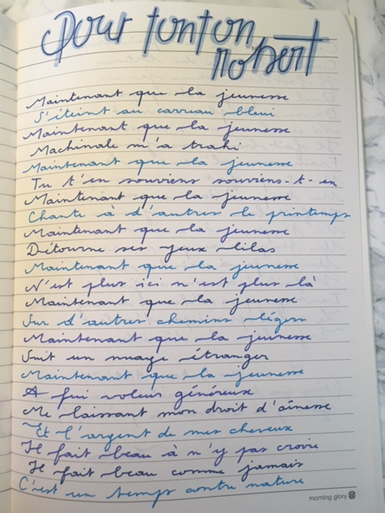 Pour tonton
robert
Maintenant que la jeunesse
S'éteint au carreau bleui
Maintenant que la jeunesse
Machinale m'a trahi
Maintenant que la jeunesse
Tu t'en souviens souviens-t-en
Maintenant que la jeunesse
Chante à d'autres le printemps
Maintenant que la jeunesse
Détourne ses yeux lilas
Maintenant que la jeunesse
N'est plus ici n'est plus là
Maintenant que la jeunesse
Sur d'autres chemins légers
Maintenant que la jeunesse
Suit un nuage étranger
Maintenant que la jeunesse
A fui voleur généreux
Me laissant mon droit d'aînesse
Et l'argent de mes cheveux
Il fait beau à n'y pas croire
Il fait beau comme jamais
C'est un temps contre nature
morning glory